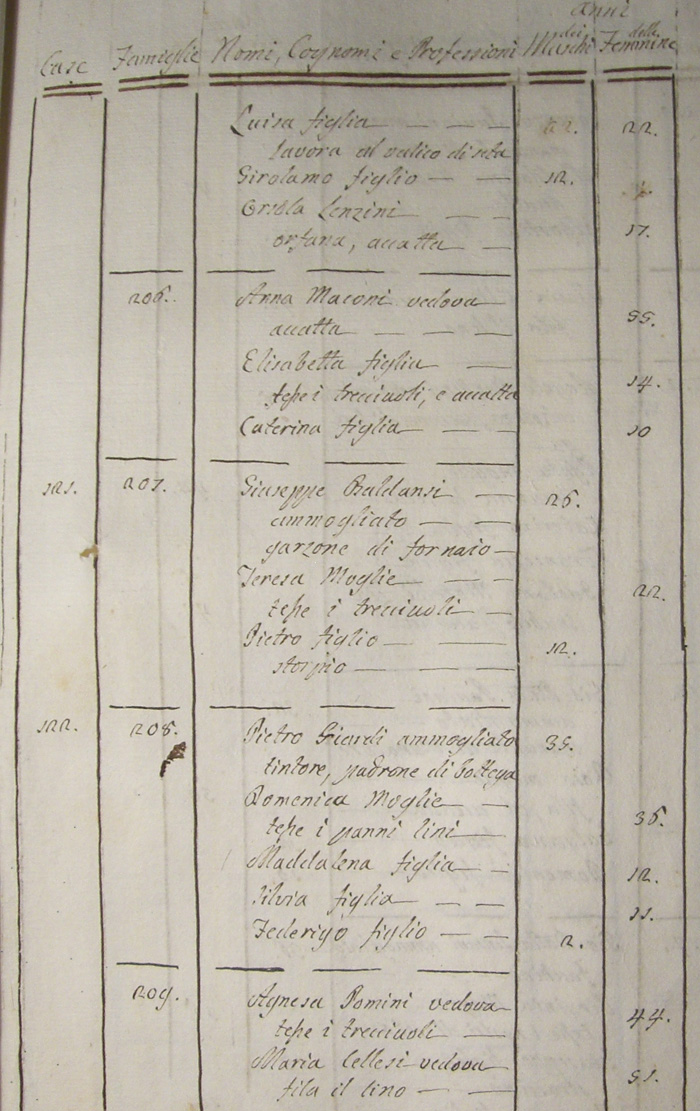 Anni
Case Famiglie Nomi, Cognomi e Professioni dei Maschi delle Femmine
Luisa figlia — — — 22.
lavora al valico di seta
Girolamo figlio — — 12.
Orsola Lenzini — —
orfana, accatta — 17.
206. Anna Maconi vedova
accatta — — — 55.
Elisabetta figlia —
tesse i trecciuoli, e accatta 14.
Caterina figlia — — 10
121. 207. Giuseppe Baldansi — 26.
ammogliato — —
garzone di fornaio —
Teresa Moglie — — 22.
tesse i trecciuoli —
Pietro figlio — — 12.
storpio — — —
122. 208. Pietro ammogliato 35.
tintore, padrone di bottega
Domenica Moglie —
tesse i panni lini — 36.
Maddalena figlia — 12.
Silvia figlia — — 11.
Federigo figlio — — 2.
209. Agnesa Pomini vedova
tesse i trecciuoli — 44.
Maria Cellesi vedova
fila il lino — — 51.